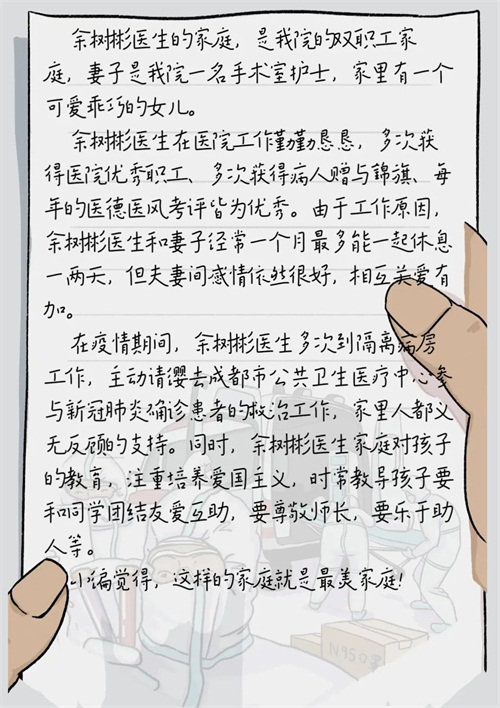 余树彬医生的家庭，是我院的双职工家
庭，妻子是我院一名手术室护士，家里有一个
可爱乖巧的女儿。
余树彬医生在医院工作勤勤恳恳，多次获
得医院优秀职工、多次获得病人赠与錦旗、每
年的医德医风考评皆为优秀。由于工作原因，
余树彬医生和妻子经常一个月最多能一起休息
一两天，但夫妻间感情依然很好，相互关爱有
加。
在疫情期间，余树彬医生多次到隔离病房
工作，主动请缨去成都市公共卫生医疗中心参
与新冠肺炎确诊患者的救治工作，家里人都义
无反顾的支持。同时，余树彬医生家庭对孩子
的教育，注重培养爱国主义，时常教导孩子要
和同学团结友爱互助，要尊敬师长，要乐于助
人等。
小编觉得，这样的家庭就是最美家庭！